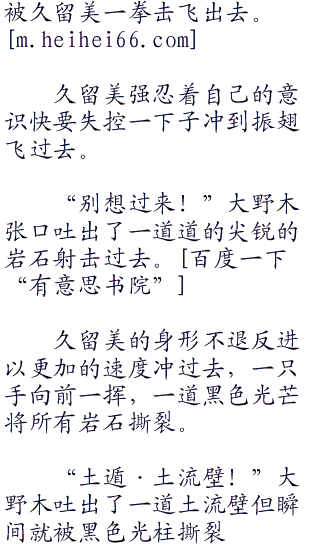 被久留美一拳击飞出去。
[m.heihei66.com]
久留美强忍着自己的意
识快要失控一下子冲到振翅
飞过去。
“别想过来！”大野木
张口吐出了一道道的尖锐的
岩石射击过去。[百度一下
“有意思书院”]
久留美的身形不退反进
以更加的速度冲过去，一只
手向前一挥，一道黑色光芒
将所有岩石撕裂。
“土遁·土流壁！”大
野木吐出了一道土流壁但瞬
间就被黑色光柱撕裂